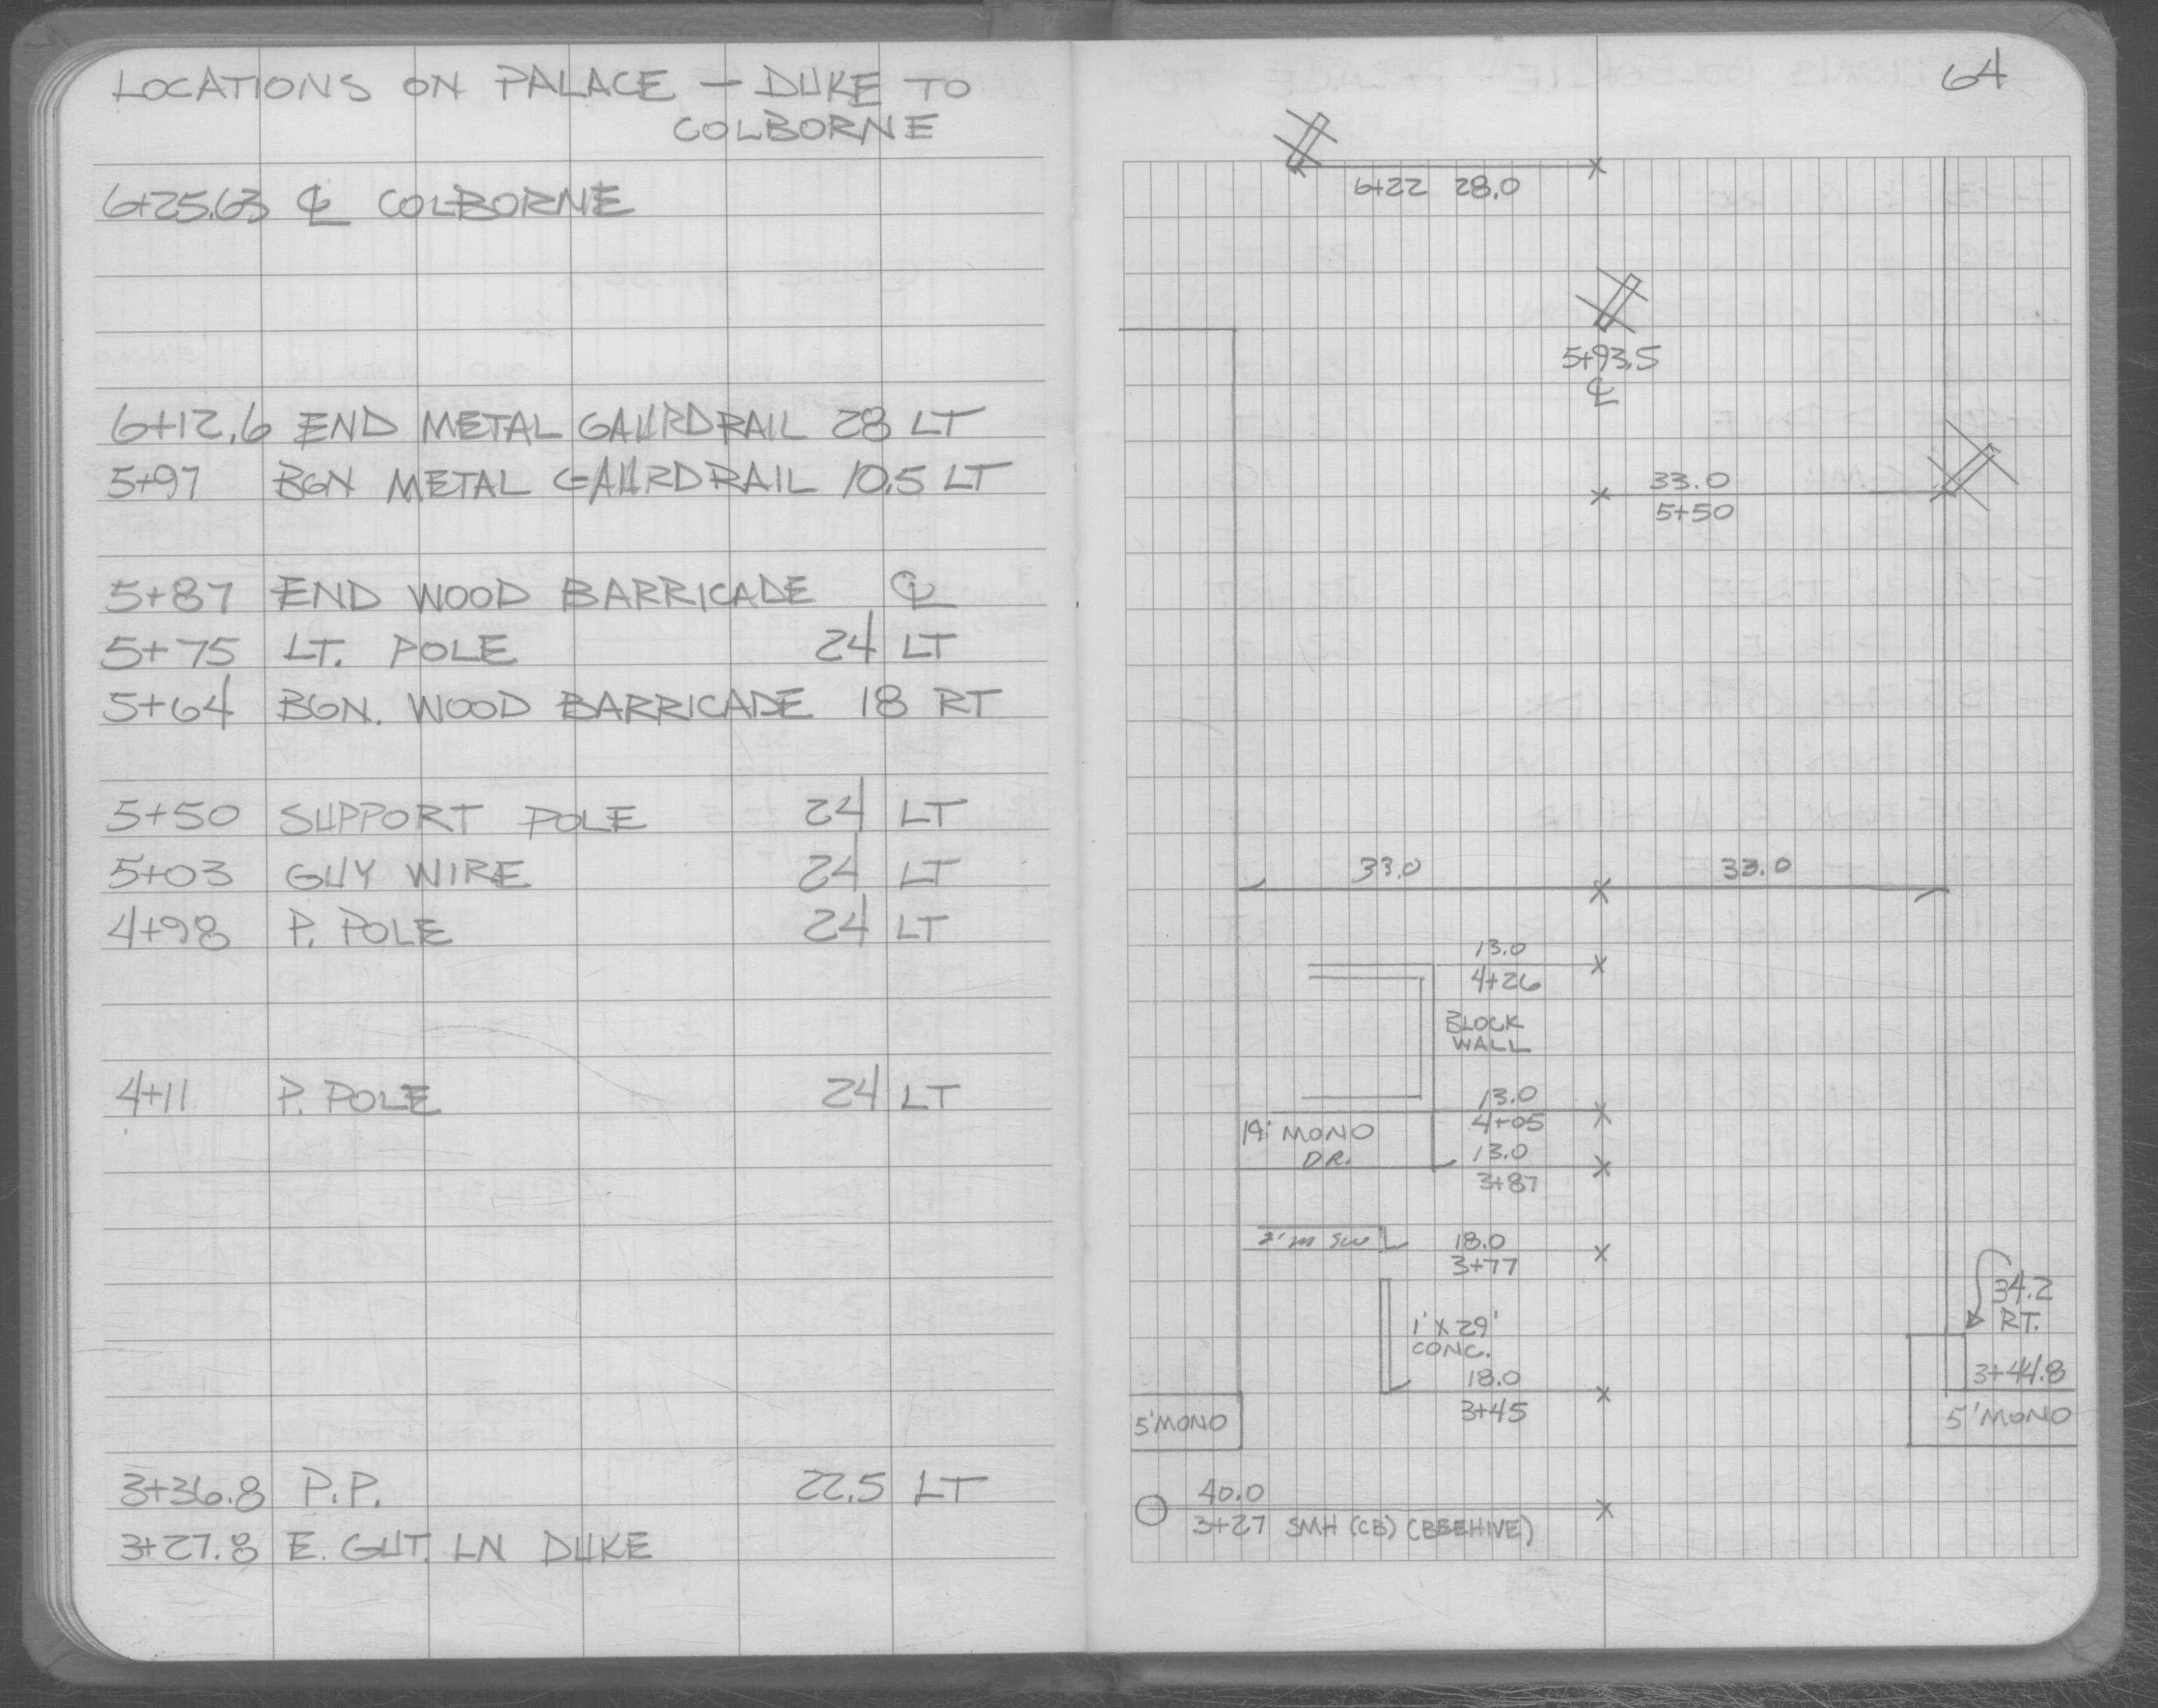 LOCATIONS ON PALACE — DUKE TO
COLBORNE
6+25.63 ℄ COLBORNE
6+12.6 END METAL GAURDRAIL 28 LT
5+97 BGN METAL GAURDRAIL 10.5 LT
5+87 END WOOD BARRICADE ℄
5+75 LT. POLE 24 LT
5+64 BGN. WOOD BARRICADE 18 RT
5+50 SUPPORT POLE 24 LT
5+03 GUY WIRE 24 LT
4+98 P. POLE 24 LT
4+11 P. POLE 24 LT
3+36.8 P.P. 22.5 LT
3+27.8 E. GUT. LN DUKE
64
6+22 28.0
5+93.5
℄
33.0
5+50
33.0 33.0
13.0
4+26
BLOCK
WALL
13.0
4+05
MONO
DR.
13.0
3+87
2' M SW
18.0
3+77
34.2
RT.
1' X 29'
CONC.
18.0
3+45
3+44.8
5' MONO
5' MONO
40.0
3+27 SMH (CB) (BEEHIVE)